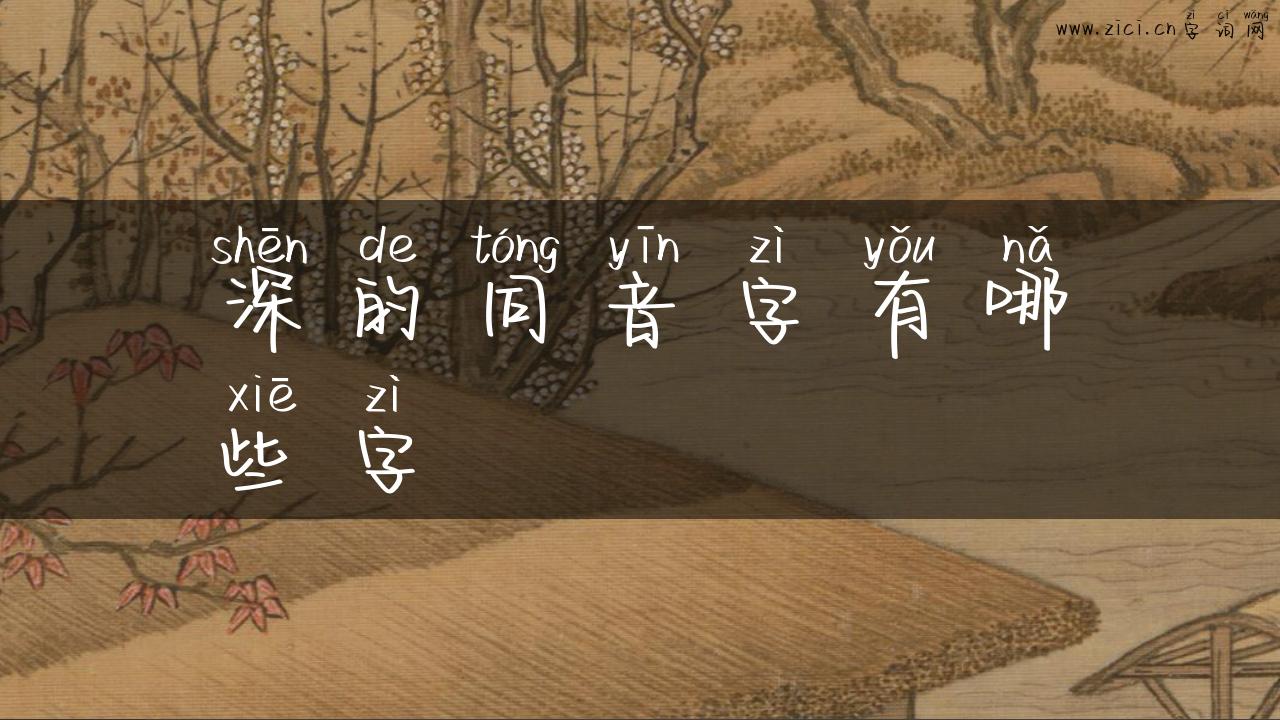 zì cí wǎng
www.zici.cn字词网
shēn de tóng yīn zì yǒu nǎ
深的同音字有哪
xiē zì
些字